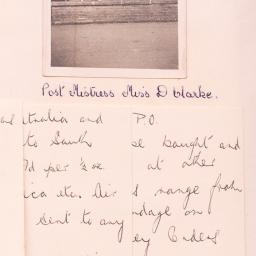 Post Mistress Miss D Clarke.
and
tralia and
to South
d per ½ oz.
ica etc. Air
sent to any
P.O.
be bought and
at other
s range from
ndage on
ey Orders